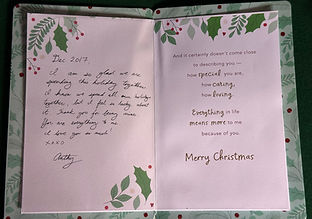 Dec 2017
I am so glad we are
spending this holiday together.
I know we spend all our holidays
together, but I feel so lucky about
it. Thank you for being mine.
You are everything to me.
I love you so much!
XOXO
And it certainly doesn't come close
to describing you —
how special you are,
how caring,
how loving.
Everything in life
means more to me
because of you.
Merry Christmas